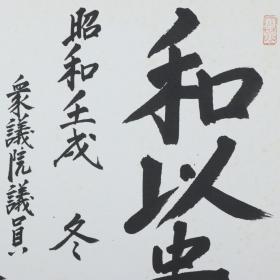 和以
昭和壬戌 冬
衆議院議員